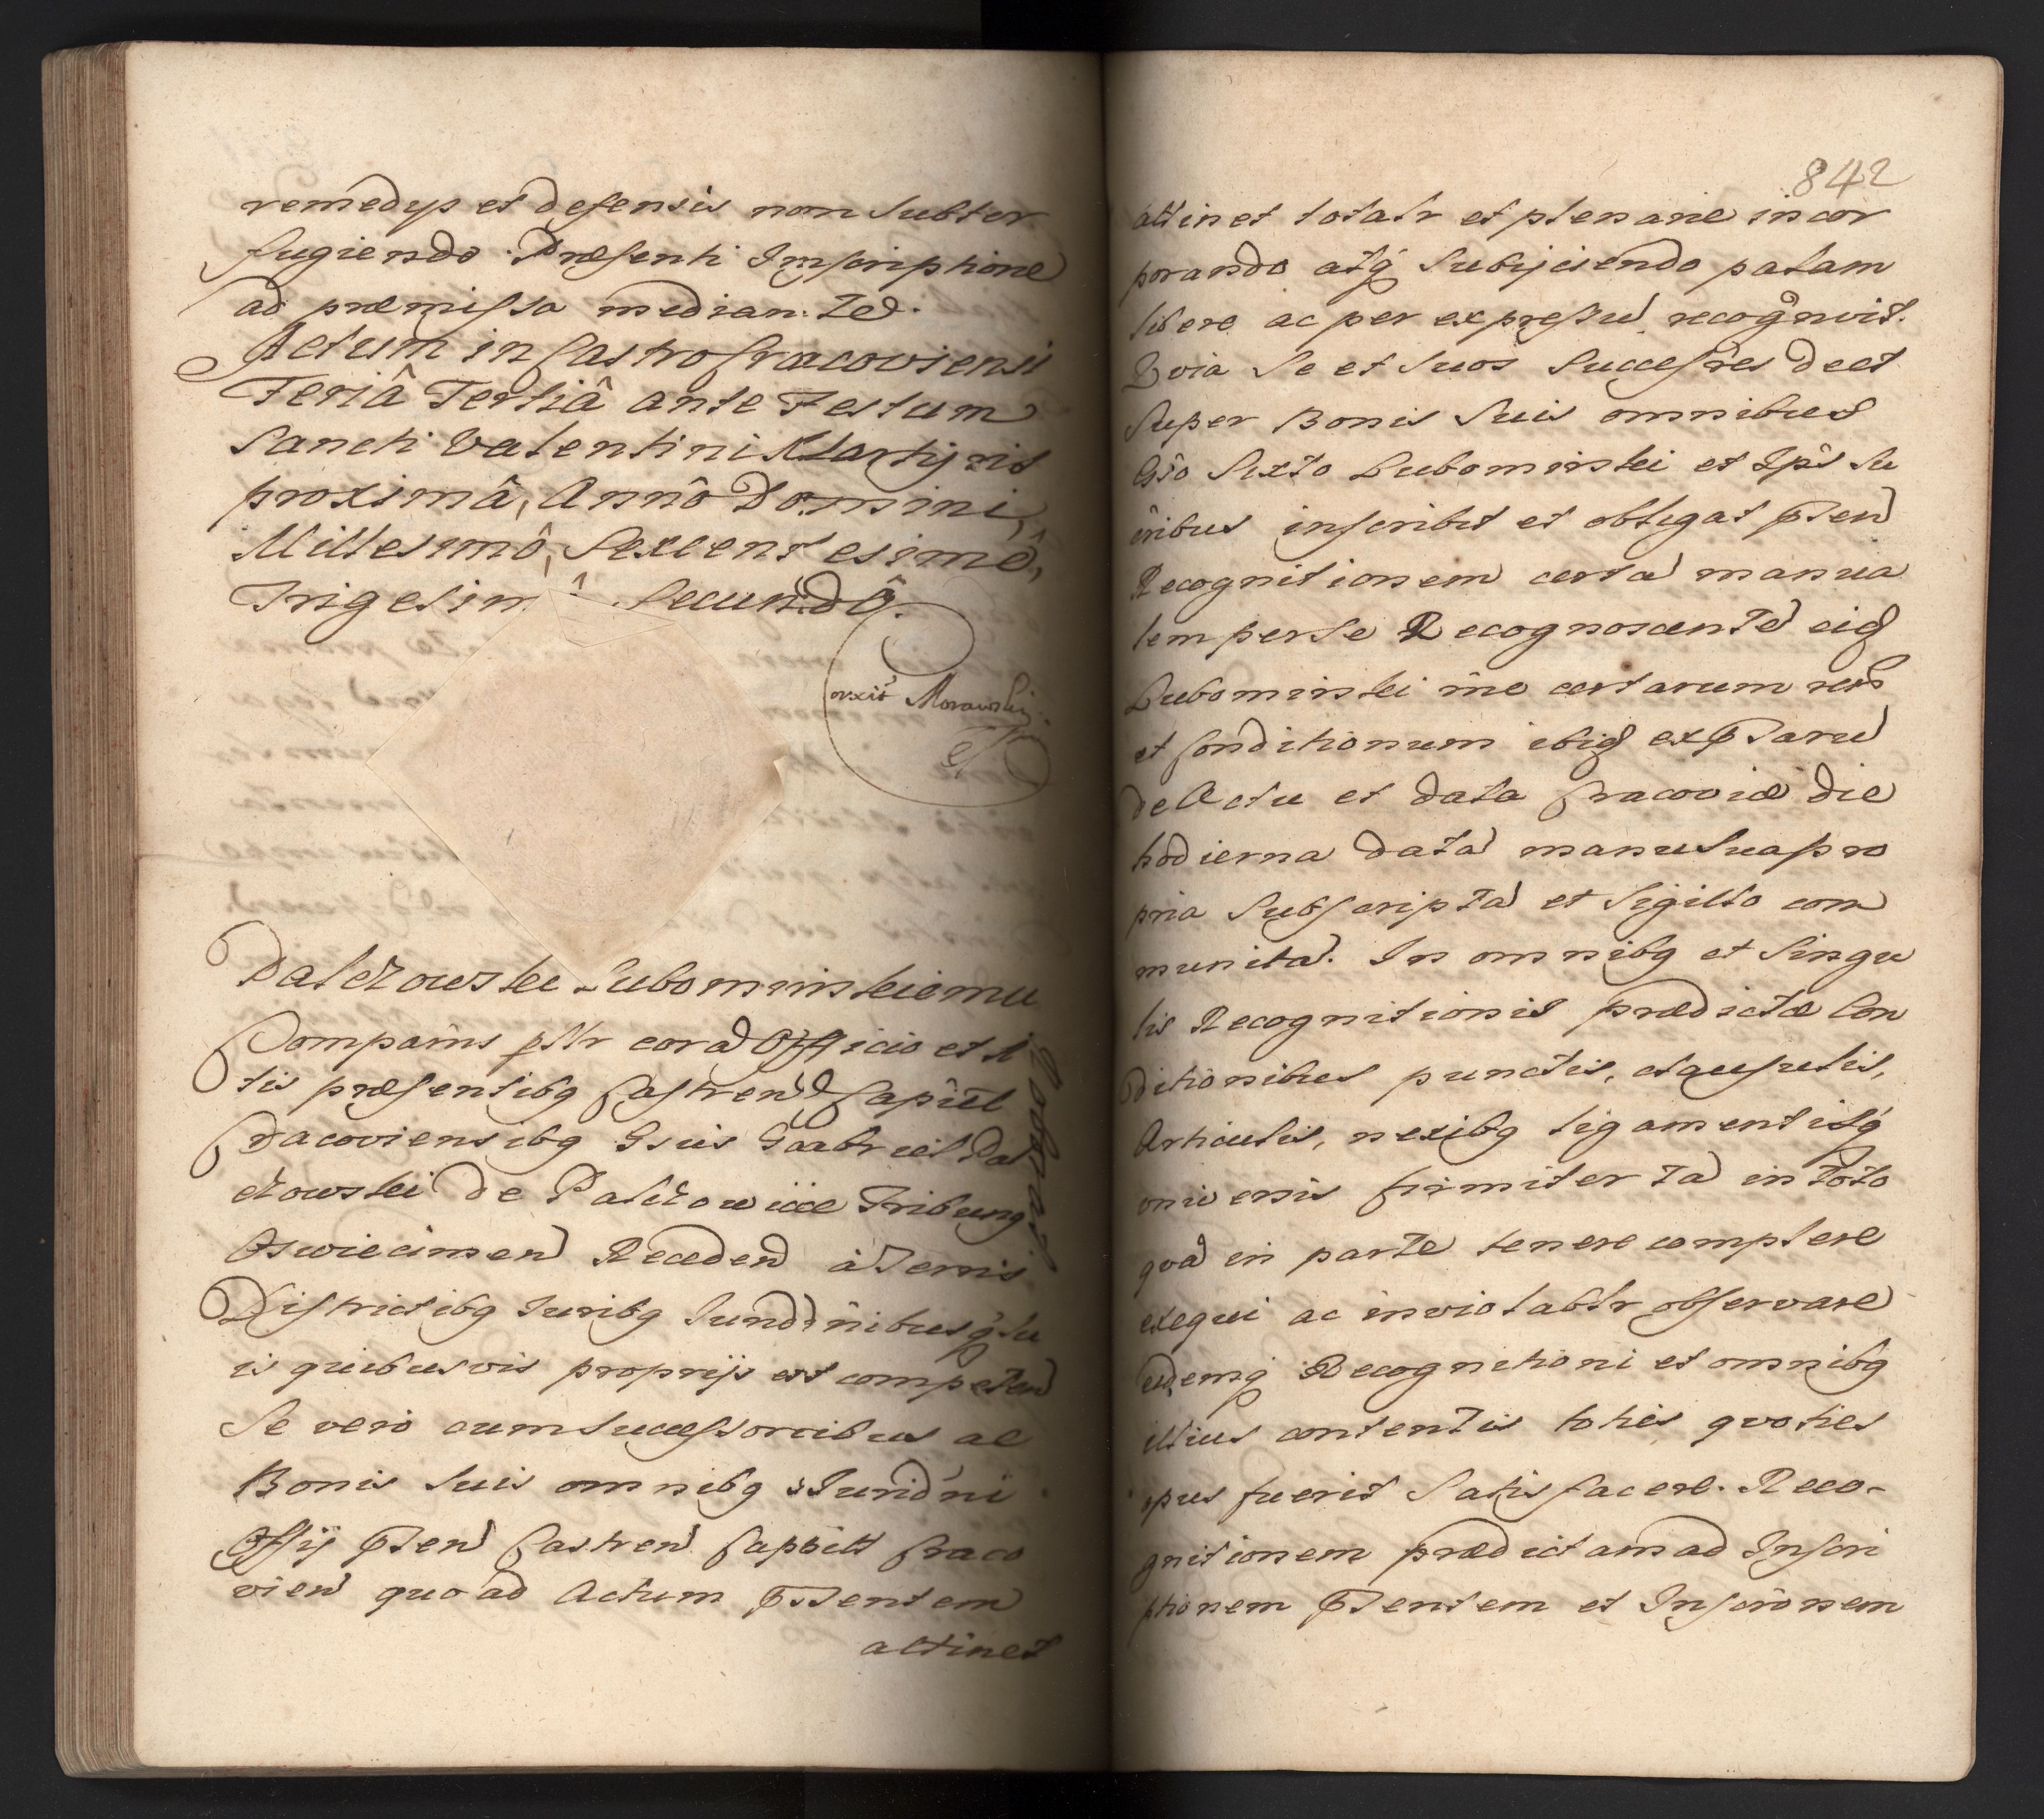 remedijs et defensis non subter
fugiendo. Præsenti Inscriptione
ad præmissa median. Ted.
Actum in Castro Cracoviensi
Feriâ Tertiâ ante Festum
Sancti Valentini Martyris
proximâ, Annô Domini,
Millesimô, Sexcentesimô,
Trigesimô Secundô.
Morawsky
Palczowski Lubomirskiemu
Compains pslr corā Officio et A
tis præsentibg Castrend Capitl
Cracoviensibg Gsus Gaabriel Pal
czowski de Palczowice Tribung
Oswiecimen Receden à Terris
Districtibg Juribg Jundōnibusq su
is quibusvis proprijs et competen
Se vero cum Successoribus ac
Bonis Suis omnibg Jurisdni
Offij Pten Castren Capitt Craco
vien quo ad Actum Psentem
attinet
842
attinet totalr et plenarie incor
porando atq Subijciendo palam
libere ac per expressū recognovit.
Quia Se et Suos Successres deet
Super Bonis Suis omnibus
Gso Sixto Lubomirski et Ips Su
oribus inscribit et obligat Pten
Recognitionem certā manua
lem per Se Recognoscentē eid
Lubomirski rne certarum rerū
et Conditionum ibid exPsarū
de Actu et data Cracoviæ die
hodierna datā manu Sua pro
pria Subscriptā et Sigillo com
munitā. In omnibg et Singu
lis Recognitionis prædictæ Con
ditionibus punctis, clausulis,
Articulis, nexibg ligamentisq
univensis firmiter tā in toto
qvā in parte tenere complere
exequi ac inviolablr observare
eidemq Recognitioni et omnibg
illius contentis toties qvoties
opus fuerit Satisfacere. Reco-
gnitionem prædictam ad Inscri
ptionem Psentem et Inscrōnem